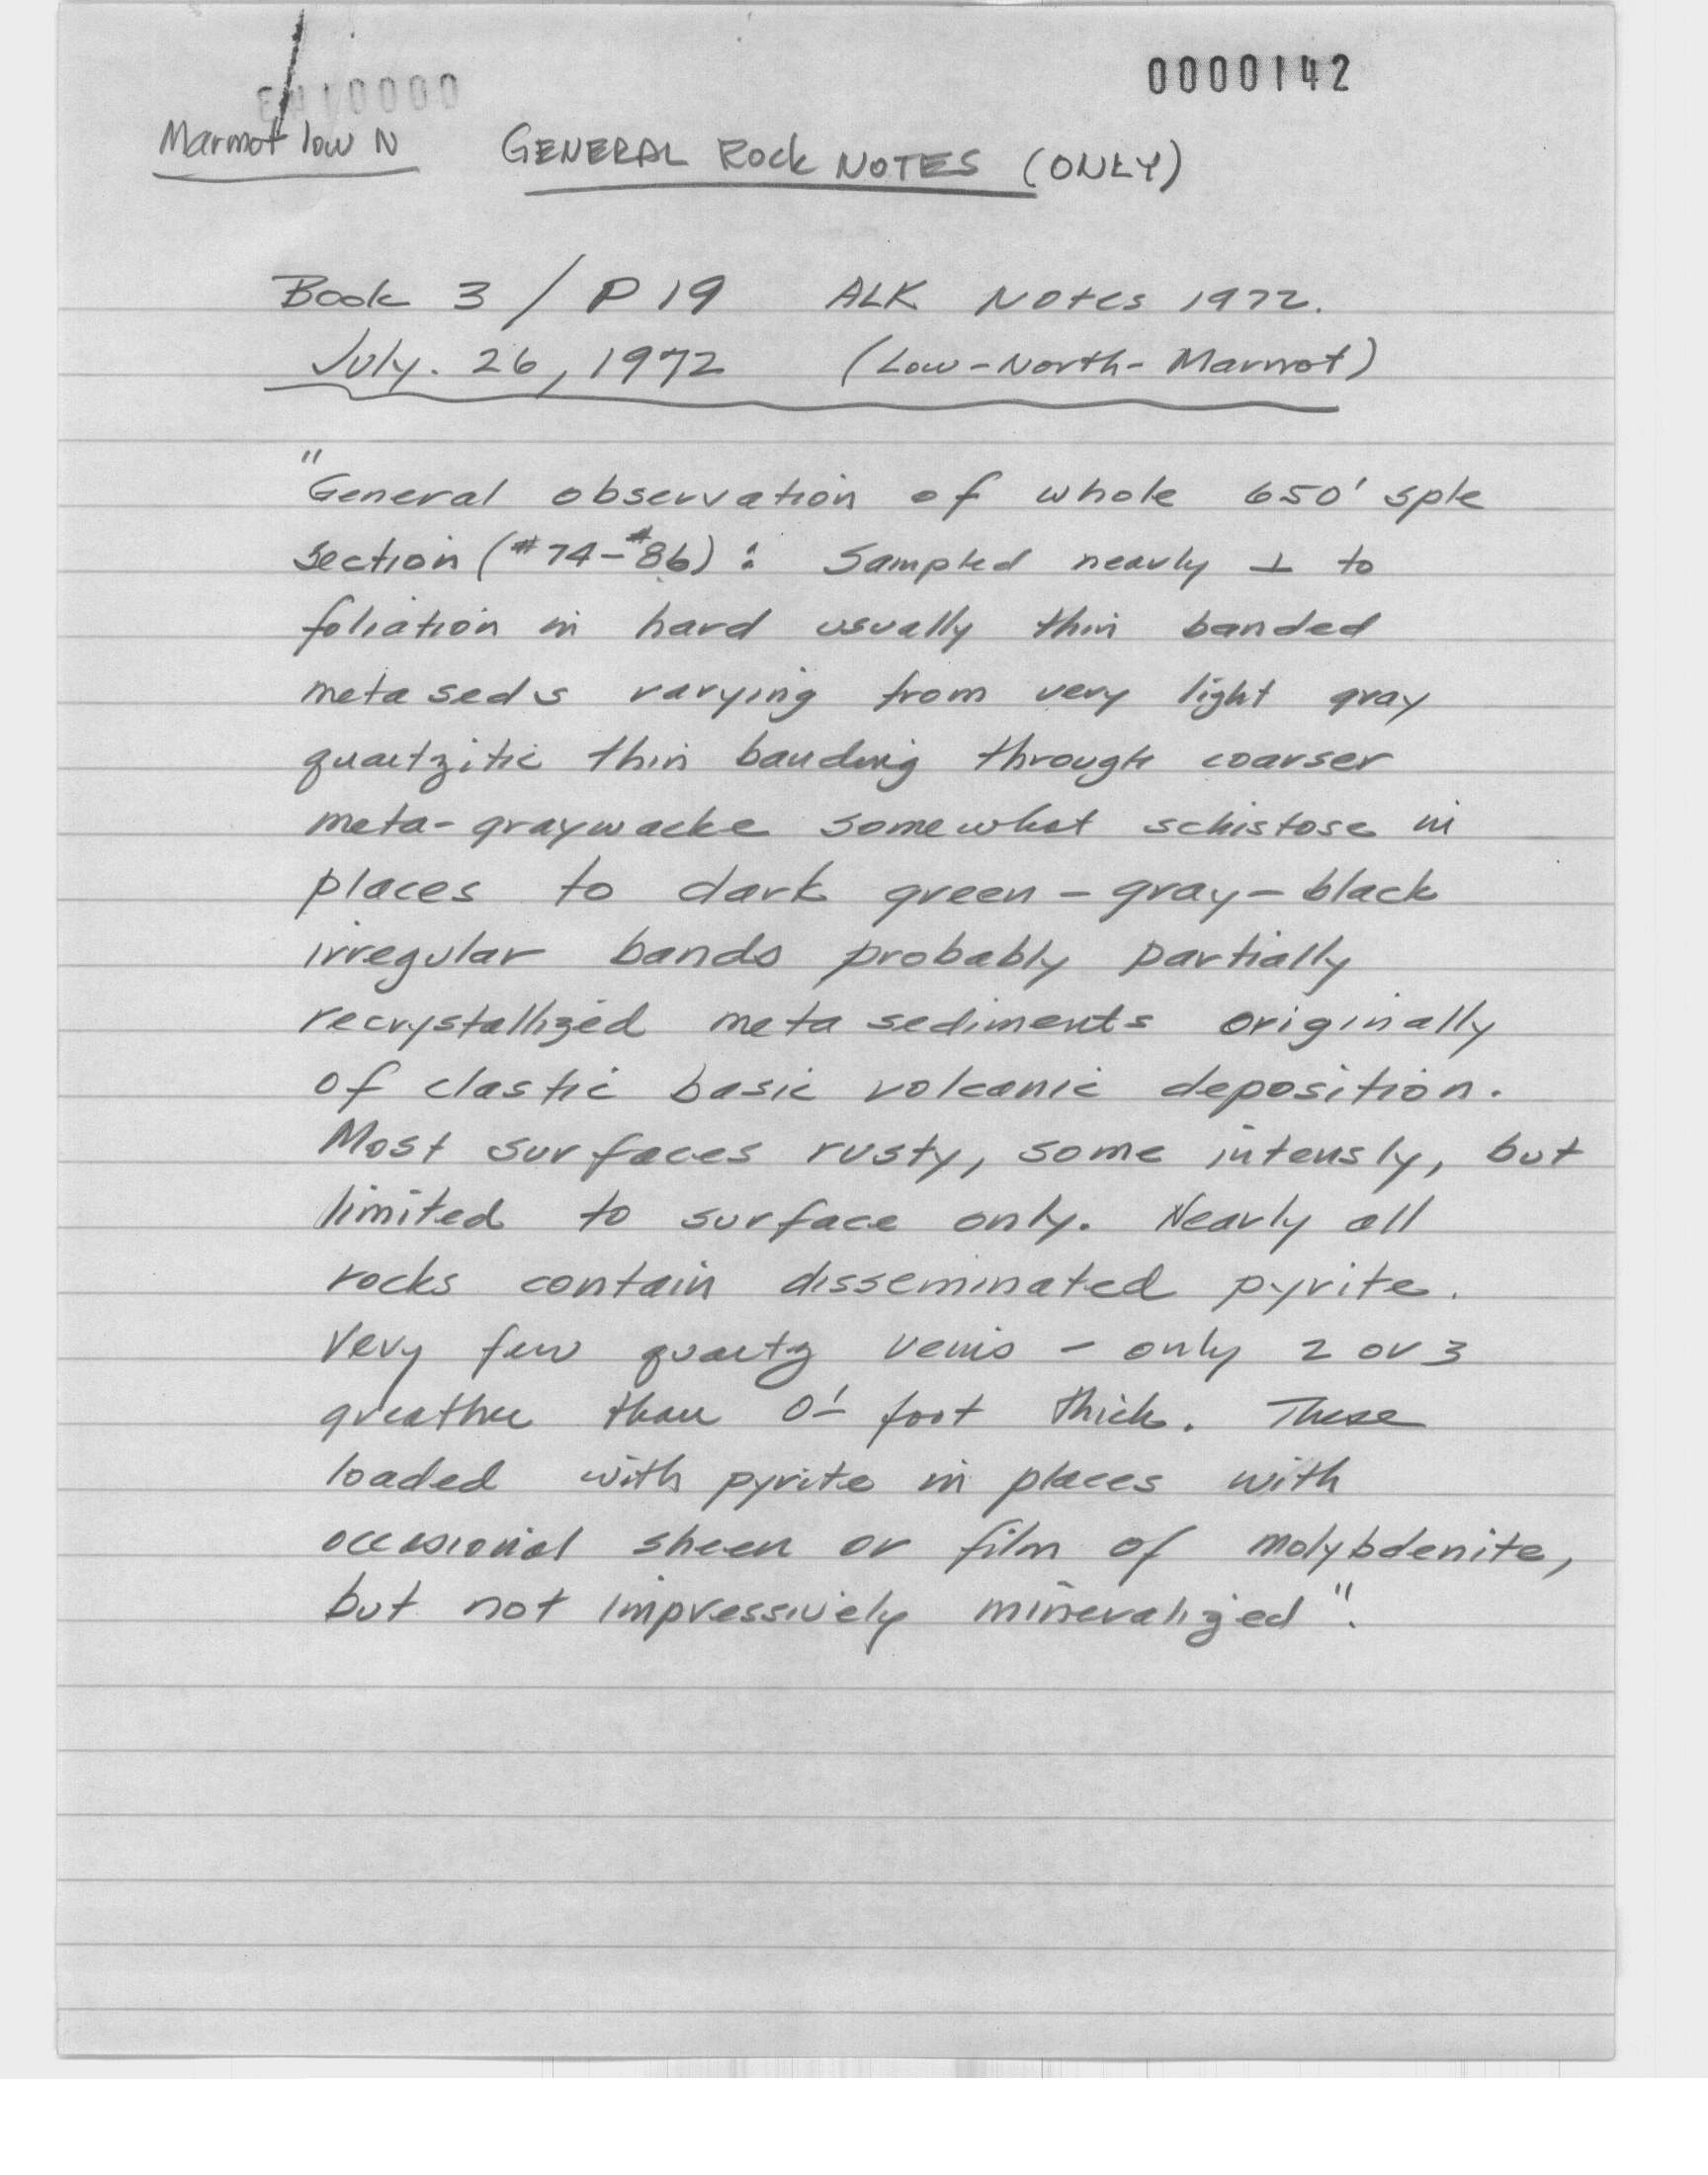 0000142
Marmot low N GENERAL Rock NOTES (ONLY)
Book 3 / P 19 ALK Notes 1972.
July. 26, 1972 (Low-North-Marmot)
"General observation of whole 650' sple
section (#74-#86) : Sampled nearly ⊥ to
foliation in hard usually thin banded
meta seds varying from very light gray
quartzitic thin banding through coarser
meta-graywacke somewhat schistose in
places to dark green - gray - black
irregular bands probably partially
recrystallized meta sediments originally
of clastic basic volcanic deposition.
Most surfaces rusty, some intensly, but
limited to surface only. Nearly all
rocks contain disseminated pyrite.
Very few quartz veins - only 2 or 3
greather than foot thick. These
loaded with pyrite in places with
occasional sheen or film of molybdenite,
but not impressively mineralized".